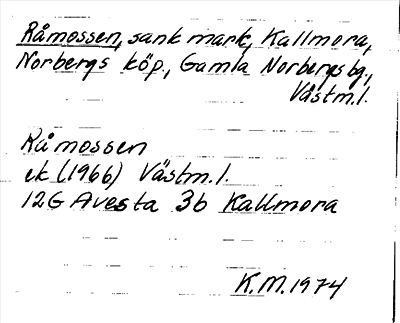 Råmossen, sank mark, Kallmora,
Norbergs köp., Gamla Norbergsbg.,
Västm.l.
Råmossen
ek (1966) Västm.l.
12G Avesta 3b Kallmora
K.M. 1974